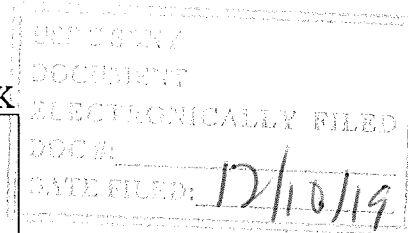 K
DOCUMENT
ELECTRONICALLY FILED
DOC #:
DATE FILED: 12/10/19